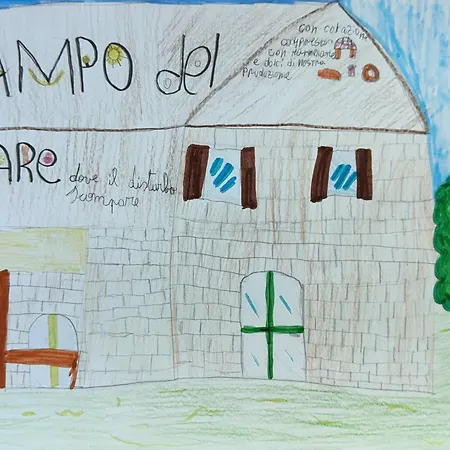 AMPO del
ARE dove il disturbo
scompare
con colazione
compresa
con marmellate
e dolci di nostra
produzione